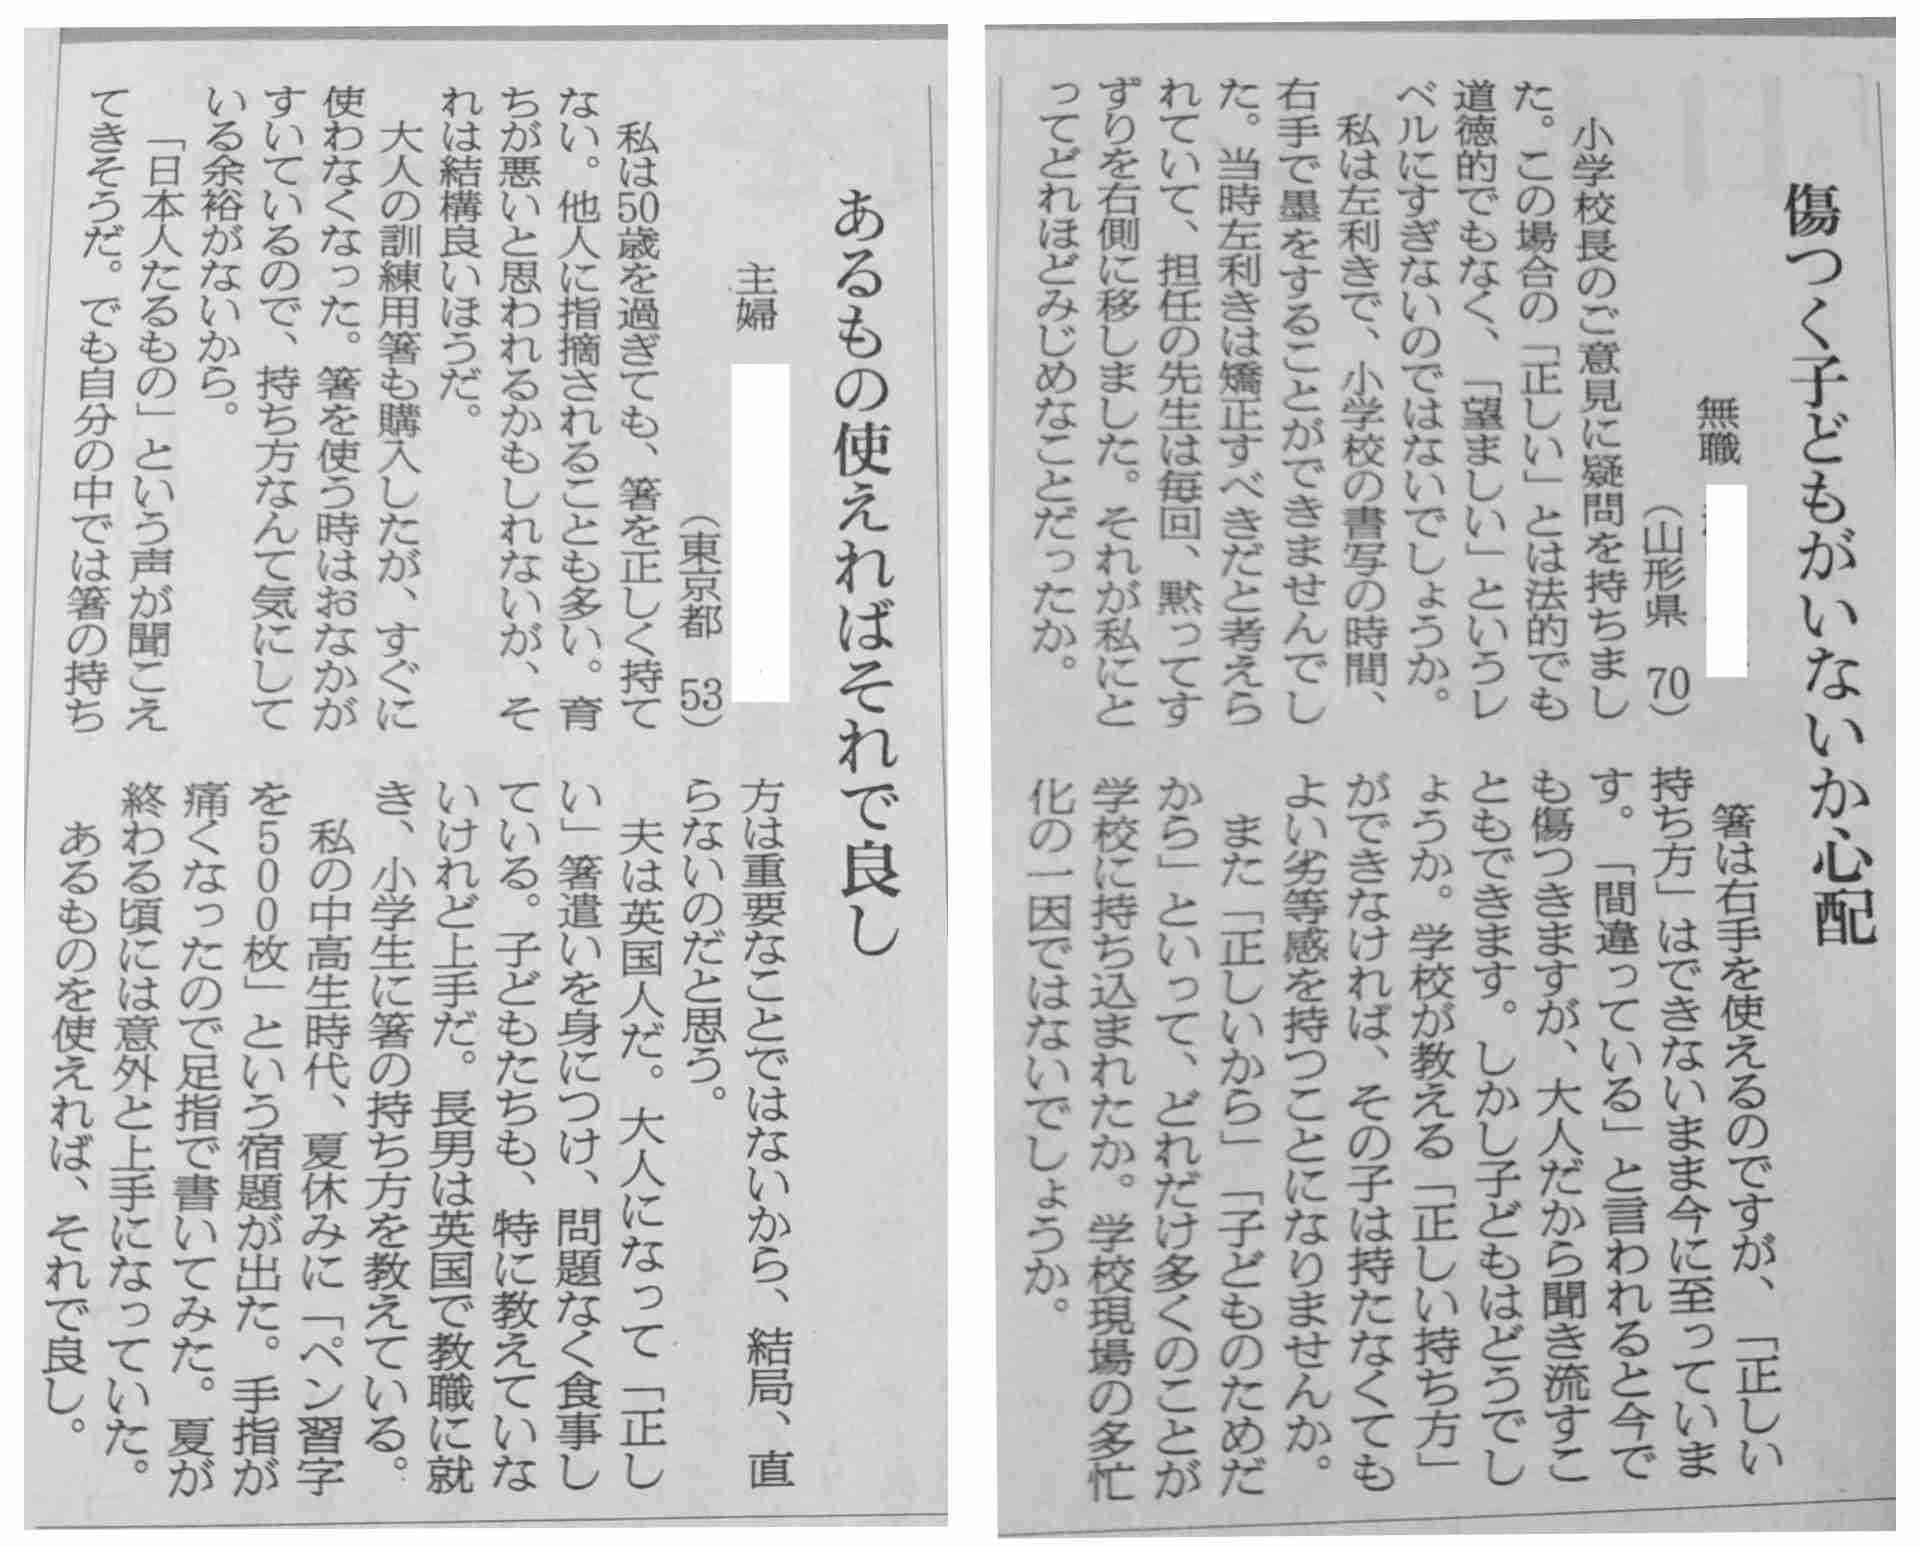 傷つく子どもがいないか心配
無職
(山形県 70)
小学校長のご意見に疑問を持ちまし
た。この場合の「正しい」とは法的でも
道徳的でもなく、「望ましい」というレ
ベルにすぎないのではないでしょうか。
私は左利きで、小学校の書写の時間、
右手で墨をすることができませんでし
た。当時左利きは矯正すべきだと考えら
れていて、担任の先生は毎回、黙ってす
ずりを右側に移しました。それが私にと
ってどれほどみじめなことだったか。
箸は右手を使えるのですが、「正しい
持ち方」はできないまま今に至っていま
す。「間違っている」と言われると今で
も傷つきますが、大人だから聞き流すこ
ともできます。しかし子どもはどうでし
ょうか。学校が教える「正しい持ち方」
ができなければ、その子は持たなくても
よい劣等感を持つことになりませんか。
また「正しいから」「子どものためだ
から」といって、どれだけ多くのことが
学校に持ち込まれたか。学校現場の多忙
化の一因ではないでしょうか。
あるもの使えればそれで良し
主婦
(東京都 53)
私は50歳を過ぎても、箸を正しく持て
ない。他人に指摘されることも多い。育
ちが悪いと思われるかもしれないが、そ
れは結構良いほうだ。
大人の訓練用箸も購入したが、すぐに
使わなくなった。箸を使う時はおなかが
すいているので、持ち方なんて気にして
いる余裕がないから。
「日本人たるもの」という声が聞こえ
てきそうだ。でも自分の中では箸の持ち
方は重要なことではないから、結局、直
らないのだと思う。
夫は英国人だ。大人になって「正し
い」箸遣いを身につけ、問題なく食事し
ている。子どもたちも、特に教えていな
いけれど上手だ。長男は英国で教職に就
き、小学生に箸の持ち方を教えている。
私の中高生時代、夏休みに「ペン習字
を500枚」という宿題が出た。手指が
痛くなったので足指で書いてみた。夏が
終わる頃には意外と上手になっていた。
あるものを使えれば、それで良し。